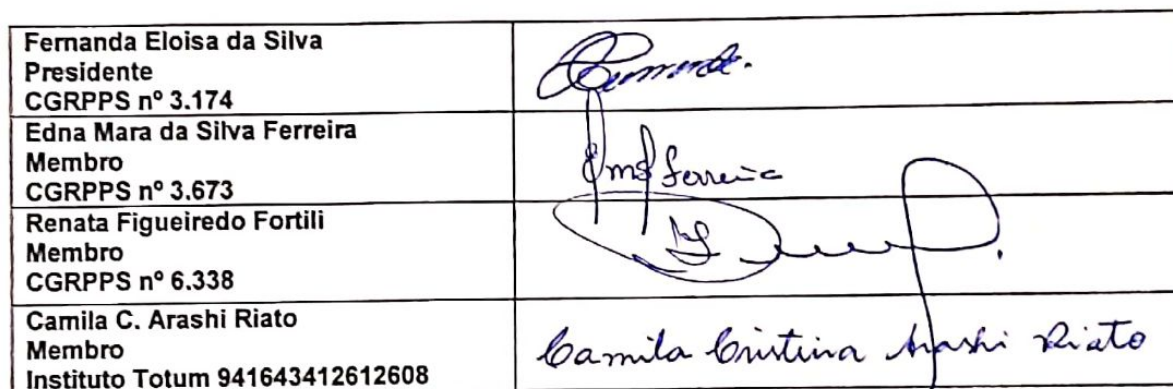 Fernanda Eloisa da Silva
Presidente
CGRPPS nº 3.174
Edna Mara da Silva Ferreira
Membro
CGRPPS nº 3.673
Ferreira
Renata Figueiredo Fortili
Membro
CGRPPS nº 6.338
Camila C. Arashi Riato
Membro
Instituto Totum 941643412612608
Camila Cristina Arashi Riato